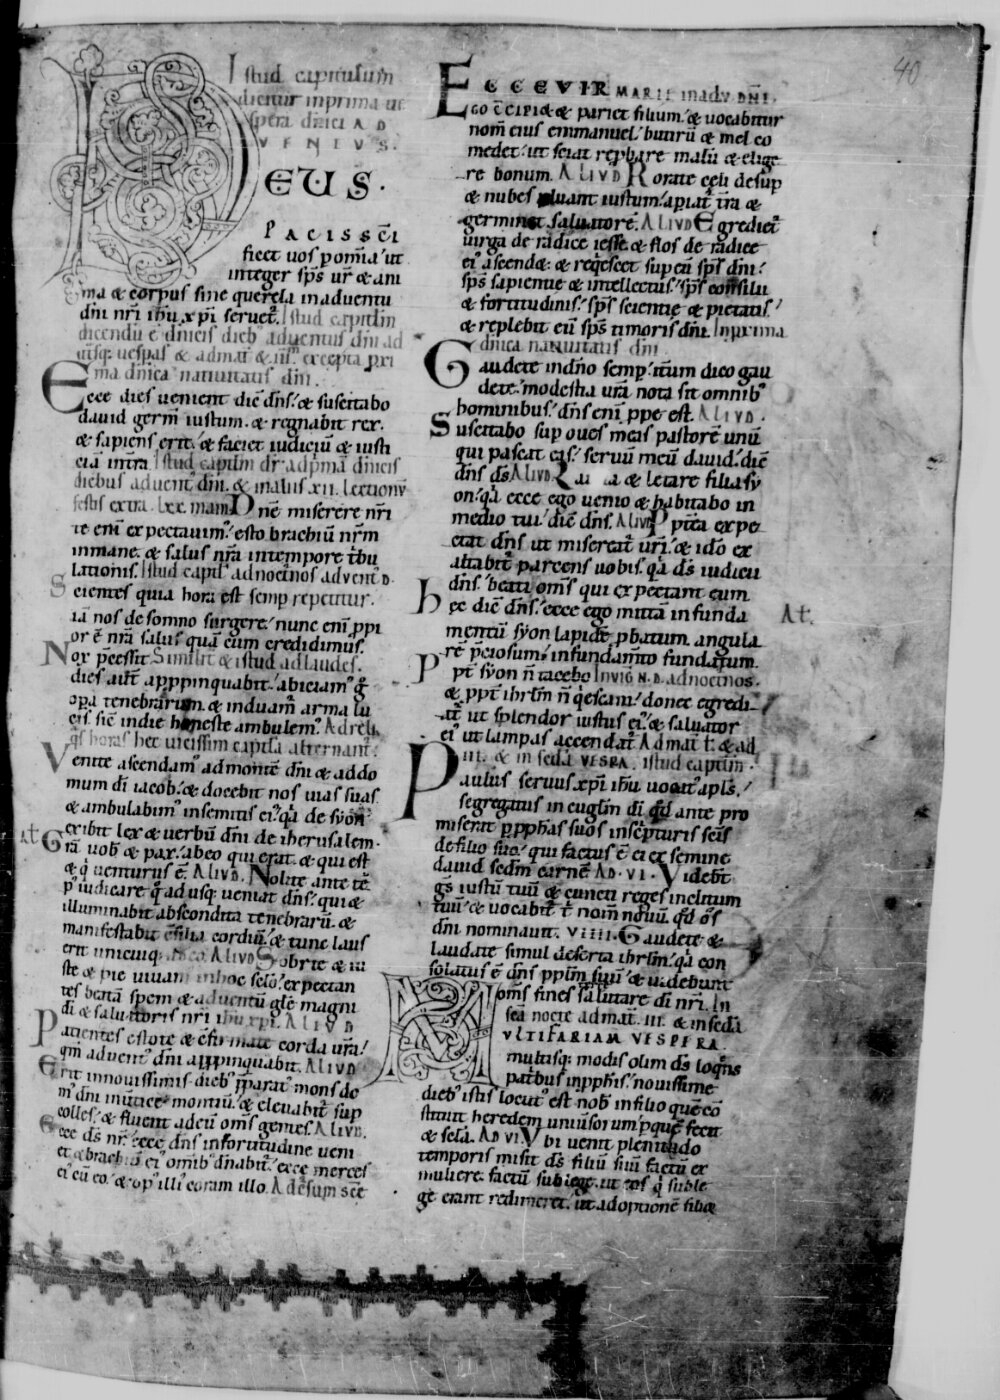 40
Istud capitulum
dicitur inprima ue
spera dnici AD
VENTUS.
DEUS.
PACIS SCI
ficet uos p omia ut
integer sps ur̄ & ani
ma & corpus sine querela inaduentu
dn̄i nr̄i ihu xp̄i seruet. Istud capitlm
dicendū ē dnicis dieb; aduentus dn̄i ad
utsq; uespas & admat̄ & iii. excepta pri
ma dnica natiuitatis dn̄i.
Ecce dies uenient dic̄ dn̄s. & suscitabo
dauid germ̄ iustum. & regnabit rex.
& sapiens erit. & faciet iudiciū & iusti
ciā int̄ra. Istud capitlm dr̄ adp̄ma dnicis
diebus aduent; dn̄i. & inalus xii. lectionū
festis extra
Dne miserere nr̄i
te enī expectauim; esto brachiū nr̄m
inmane. & salus nr̄a intempore t̄bu
lationis. Istud capit adnoct̄nos aduent; D.
Scientes quia hora est semp repetitur.
iā nos de somno surgere. nunc enī ppi
or ē nr̄a salus quā cum credidimus.
Nox p̄cessit Similit & istud adlaudes.
dies aut̄ apppinquabit. abiciam; g̊
opa tenebrarum. & induam; arma lu
cis. sic̄ indie honeste ambulem;. Adreli
q̄s horas hec uicissim capitla alternant̄.
Venite ascendam; admontē dn̄i & addo
mum dī iacob. & docebit nos uias suas.
& ambulabim; insemitis ei;. q̄a de syon
exibit lex & uerbū dn̄i de iherusalem.
At. Gra uob̄ & pax. abeo qui erat. & qui est
& q̄ uenturus ē. ALIUD. Nolite ante tē
p; iudicare q̊ adusq; ueniat dn̄s. qui &
illuminabit abscondita tenebrarū. &
manifestabit c̄silia cordiū. & tunc laus
erit unicuiq; adeo. ALIUD Sobrie & iu
ste & pie uiuam; inhoc sclo. expectan
tes beatā spem & aduentū gl̄e magni
dī & saluatoris nr̄i ihu xp̄i. ALIUD
Patientes estote & c̄firmate corda ur̄a.
qm̄ aduent; dn̄i appinquabit. ALIUD
Erit innouissimis dieb; p̄parat; mons do
m; dn̄i inu̇tice montiū. & eleuabit̄ sup
colles. & fluent adeū om̄s gentes. ALIUD.
Ecce ds̄ nr̄. ecce dn̄s infortitudine ueni
et & brachiū ei; om̄ib; dn̄abit̄. ecce merces
ei; cū eo. & op; illi; coram illo. Adc̄sum sc̄e
ECCE VIR MARIE inadv. DNI.
GO C̄CIPI& & pariet filium. & uocabitur
nom̄ eius emmanuel. butirū & mel co
medet. ut sciat reprobare malū & elige
re bonum. ALIUD Rorate celi desup
& nubes pluant iustum. apiat̄ t̄ra &
germinet saluatorē. ALIUD Egrediet̄
uirga de radice iesse. & flos de radice
ei; ascend&. & req̄escet sup eū sps̄ dn̄i.
sps̄ sapientie & intellectus. sps̄ consilii
& fortitudinis. sps̄ scientie & pietatis.
& replebit eū sps̄ timoris dn̄i. Inprima
dnica natiuitatis dn̄i
Gaudete indn̄o semp. itum dico gau
dete. modestia ur̄a nota sit omnib;
hominibus. dn̄s enī ppe est. ALIUD.
Suscitabo sup oues meas pastorē unū
qui pascat eas. seruū meū dauid. dic̄
dn̄s ds̄ ALIUD & letare filia sy
on. q̄a ecce ego uenio & habitabo in
medio tui. dic̄ dn̄s. ALIUD Ppt̄ea expe
ctat dn̄s ut misereat̄ ur̄i. & idō ex
altabit̄ parcens uobis. q̄a ds̄ iudicii
dn̄s. beati om̄s qui expectant eum
Hec dic̄ dn̄s. ecce ego mittā infunda At.
mentū syon lapidē p̄batum. angula
rē p̄ciosum. infundam̄to fundatum.
Ppt̄ syon n̄ tacebo Inuig̃ N.D. adnoct̄nos.
& ppt̄ ihrlm̄ n̄ q̄escam. donec egredi
at̄ ut splendor iustus ei;. & saluator
ei; ut lampas accendat̄. Admat̄ t. & ad
iii. & in sedā VESPA. istud captlm̄.
Paulus seruus xp̄i ihu uocat; apls̄.
segregatus in euglm̄ dī q̊d ante pro
miserat p p̄phas suos insc̄pturis sc̄is
defilio suo. qui factus ē ei ex semine
dauid sedm̄ carnē AD. VI. Videb̄t
g̃s iustū tuū & cuncti reges inclitum
tuū. & uocabit̄ t̄ nom̄ nouū. q̊d os̄
dn̄i nominauit. VIIII. Gaudete &
laudate simul deserta ihrlm̄. q̄a con
solatus ē dn̄s pplm̄ suū. & uidebunt
om̄s fines salutare dī nr̄i. In
sc̄a nocte admat̄. III. & insedā
MULTIFARIAM VESPERA.
multisq; modis olim ds̄ loq̄ns
pat̄bus inp̄phis. nouissime
dieb; istis locut; est nob̄ infilio quē cō
stituit heredem uniu̇sorum. p quē fecit
& sclā. AD VI. Vbi uenit plenitudo
temporis misit ds̄ filiū suū factū ex
muliere. factū sub lege. ut eos q̄ suble
ge erant redimeret. ut adoptionē filio